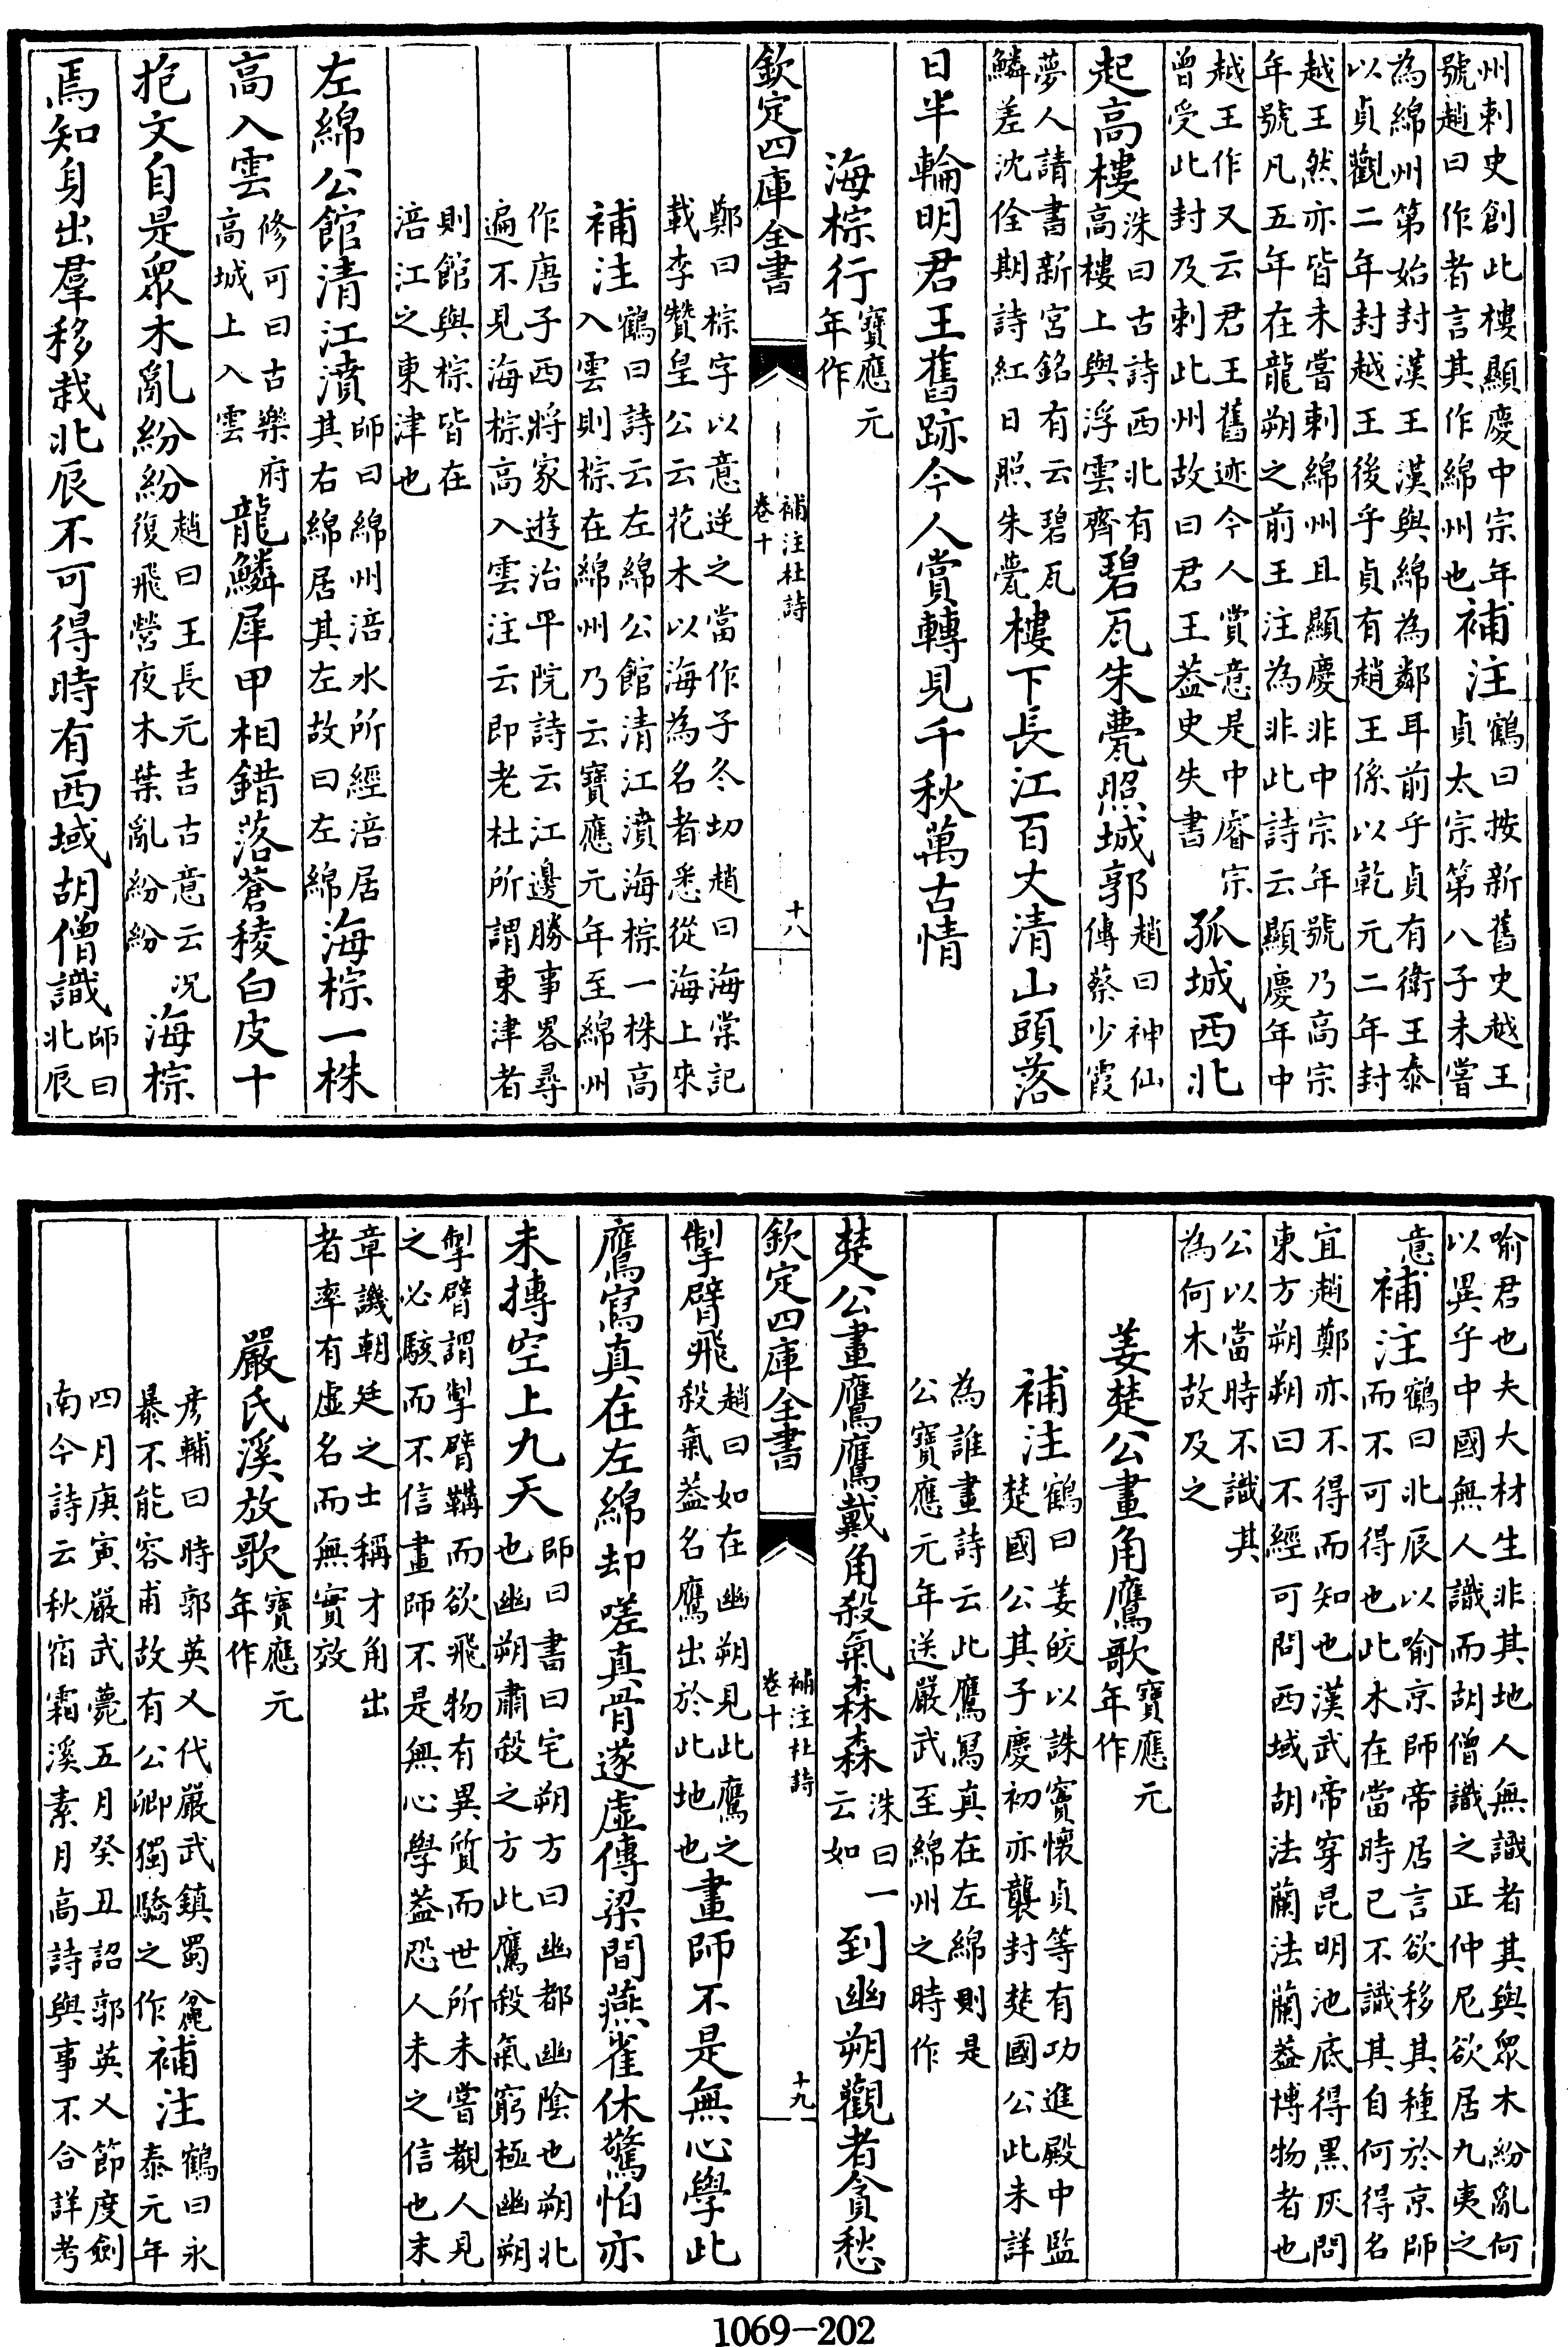 州刺史創此樓顯慶中宗年
號趙曰作者言其作綿州也
補注
鶴曰按新舊史越王
貞太宗第八子未嘗
為綿州第始封漢王漢與綿為鄰耳前乎貞有衛王泰
以貞觀二年封越王後乎貞有趙王係以乾元二年封
越王然亦皆未嘗刺綿州且顯慶非中宗年號乃高宗
年號凡五年在龍朔之前王注為非此詩云顯慶年中
越王作又云君王舊迹今人賞意是中睿宗
曾受此封及刺此州故曰君王葢史失書
孤城西北
起高樓
洙曰古詩西北有
高樓上與浮雲齊
碧瓦朱甍照城郭
趙曰神仙
傳蔡少霞
夢人請書新宮銘有云碧瓦
鱗差沈佺期詩紅日照朱甍
樓下長江百丈清山頭落
日半輪明君王舊跡今人賞轉見千秋萬古情
海棕行
寶應元
年作
欽定四庫全書
補注杜詩
卷十
十八
鄭曰棕字以意逆之當作子冬切趙曰海棠記
載李贊皇公云花木以海為名者悉從海上來
補注
鶴曰詩云左綿公館清江濆海棕一株高
入雲則棕在綿州乃云寶應元年至綿州
作唐子西將家遊治平院詩云江邊勝事畧尋
遍不見海棕高入雲注云即老杜所謂東津者
則館與棕皆在
涪江之東津也
左綿公館清江濆
師曰綿州涪水所經涪居
其右綿居其左故曰左綿
海棕一株
高入雲
修可曰古樂府
高城上入雲
龍鱗犀甲相錯落蒼稜白皮十
抱文自是衆木亂紛紛
趙曰王長元吉古意云况
復飛螢夜木葉亂紛紛
海棕
焉知身出羣移栽北辰不可得時有西域胡僧識
師曰
北辰
喻君也夫大材生非其地人無識者其與衆木紛亂何
以異乎中國無人識而胡僧識之正仲尼欲居九夷之
意
補注
鶴曰北辰以喻京師帝居言欲移其種於京師
而不可得也此木在當時已不識其自何得名
宜趙鄭亦不得而知也漢武帝穿昆明池底得黑灰問
東方朔朔曰不經可問西域胡法蘭法蘭葢博物者也
公以當時不識其
為何木故及之
姜楚公畫角鷹歌
寶應元
年作
補注
鶴曰姜皎以誅竇懷貞等有功進殿中監
楚國公其子慶初亦襲封楚國公此未詳
為誰畫詩云此鷹寫真在左綿則是
公寶應元年送嚴武至綿州之時作
楚公畫鷹鷹戴角殺氣森森
洙曰
云如
一
到幽朔觀者貪愁
欽定四庫全書
補注杜詩
卷十
十九
掣臂飛
趙曰如在幽朔見此鷹之
殺氣葢名鷹出於此地也
畫師不是無心學此
鷹寫真在左綿却嗟真骨遂虛傳梁間燕雀休驚怕亦
未摶空上九天
師曰書曰宅朔方曰幽都幽陰也朔北
也幽朔肅殺之方此鷹殺氣窮極幽朔
掣臂謂掣臂鞲而欲飛物有異質而世所未嘗覩人見
之必駭而不信畫師不是無心學葢恐人未之信也末
章譏朝廷之士稱才角出
者率有虛名而無實效
嚴氏溪放歌
寶應元
年作
彦輔曰時郭英乂代嚴武鎮蜀麄
暴不能容甫故有公卿獨驕之作
補注
鶴曰永
泰元年
四月庚寅嚴武薨五月癸丑詔郭英乂節度劍
南今詩云秋宿霜溪素月高詩與事不合詳考
1069-202